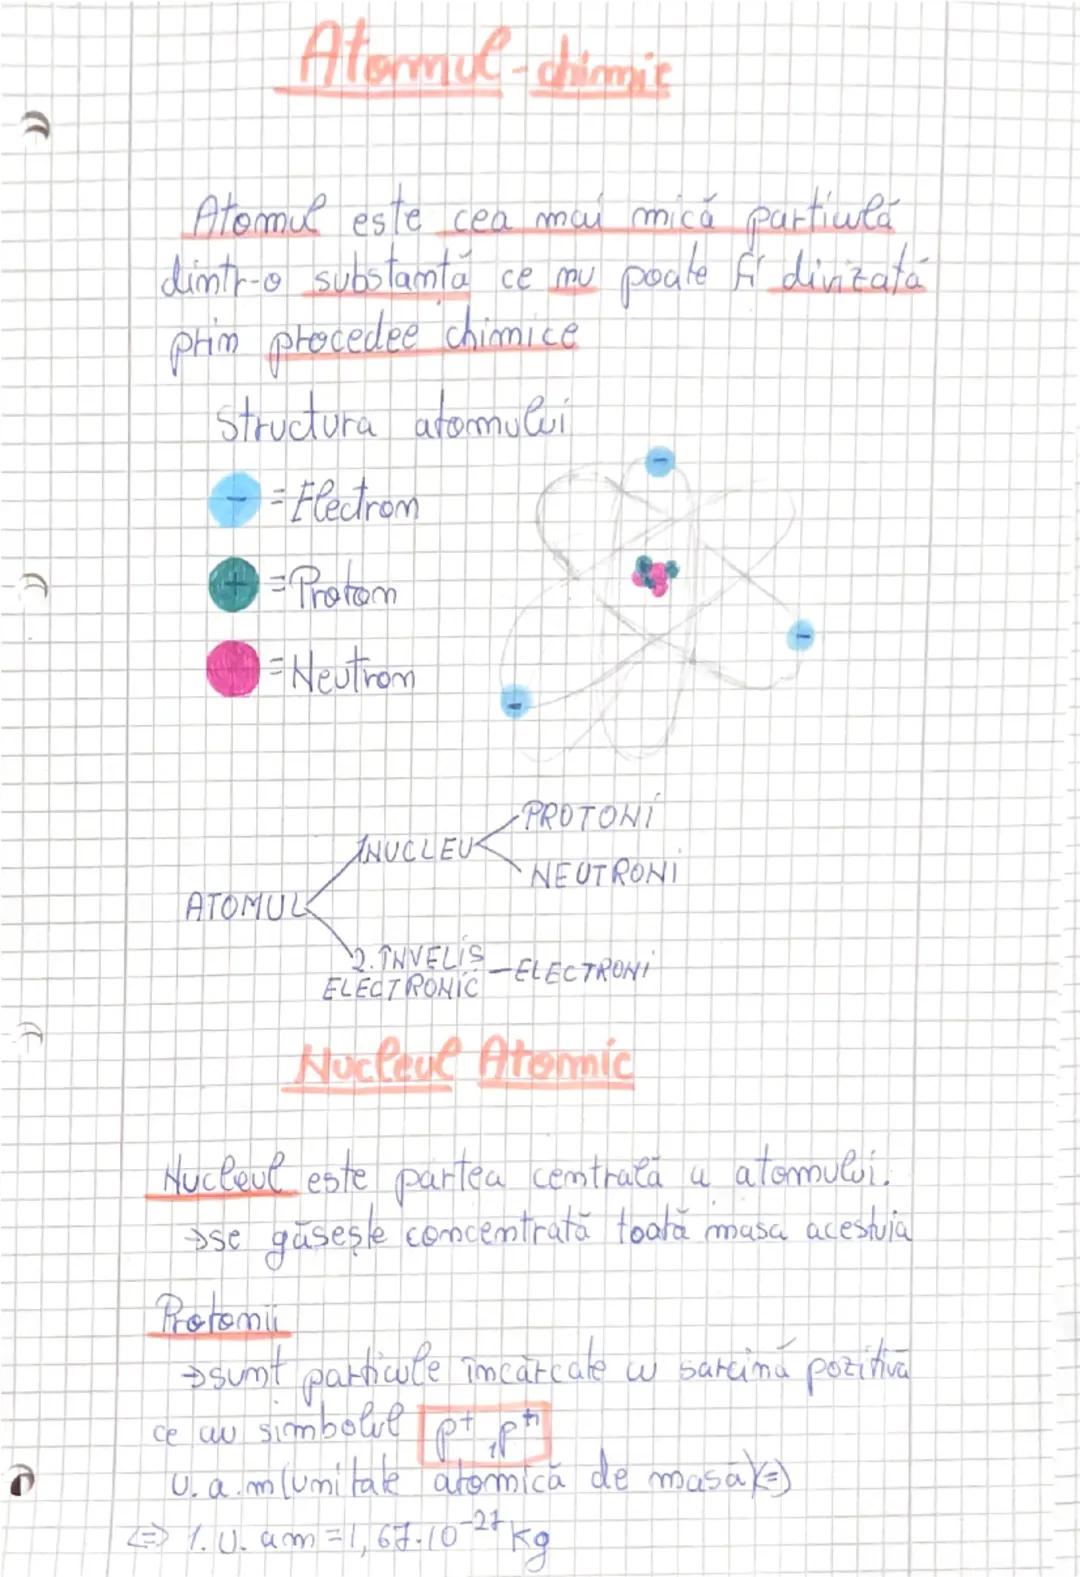 Atomul-chimie
Atomul este cea mai mică particulă
dintr-o substanță ce nu poate fi divizată
prin procedee chimice
Structura atomului
- = Electron
+ = Proton
= Neutron
-
-
-
PROTONI
1NUCLEU
NEUTRONI
ATOMUL
2. ÎNVELIȘ - ELECTRONI
ELECTRONIC
Nucleul Atomic
Nucleul este partea centrală a atomului.
→se găsește concentrată toată masa acestuia
Protonii
→sunt particule încărcate cu sarcină pozitivă
ce au simbolul p⁺,
u.a.m(unitate atomică de masă)⇔
⇔ 1.u.am=1,67.10⁻²⁷ kg